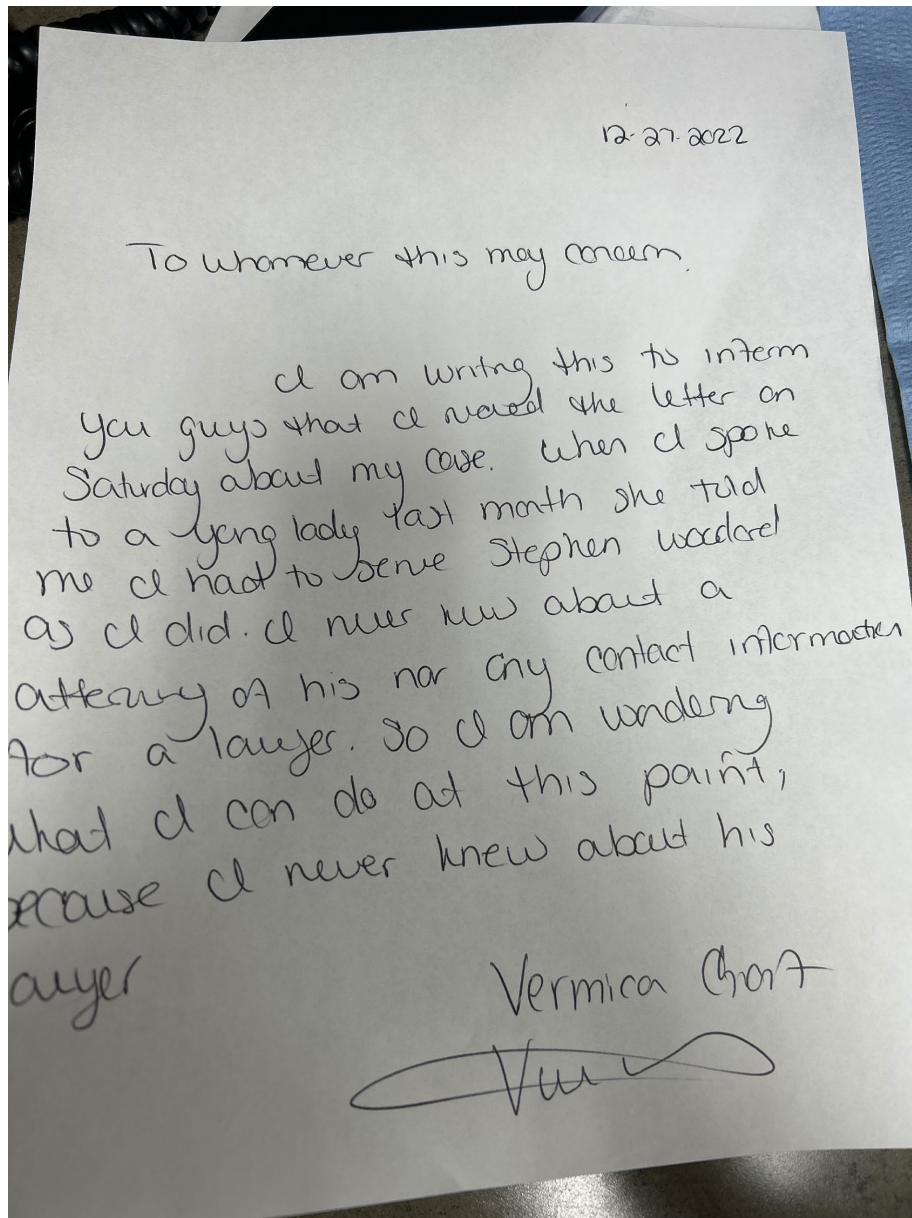 12-27-2022
To whomever this may concern.
I am writng this to inform
you guys that I recved the letter on
Saturday about my case. When I spoke
to a yong lady last month she told
me I had to serve Stephen
as I did. I never about a
of his nor any contact information
for a lawyer. So I am wonderng
what I can do at this point,
because I never knew about his
awyer
Vermica